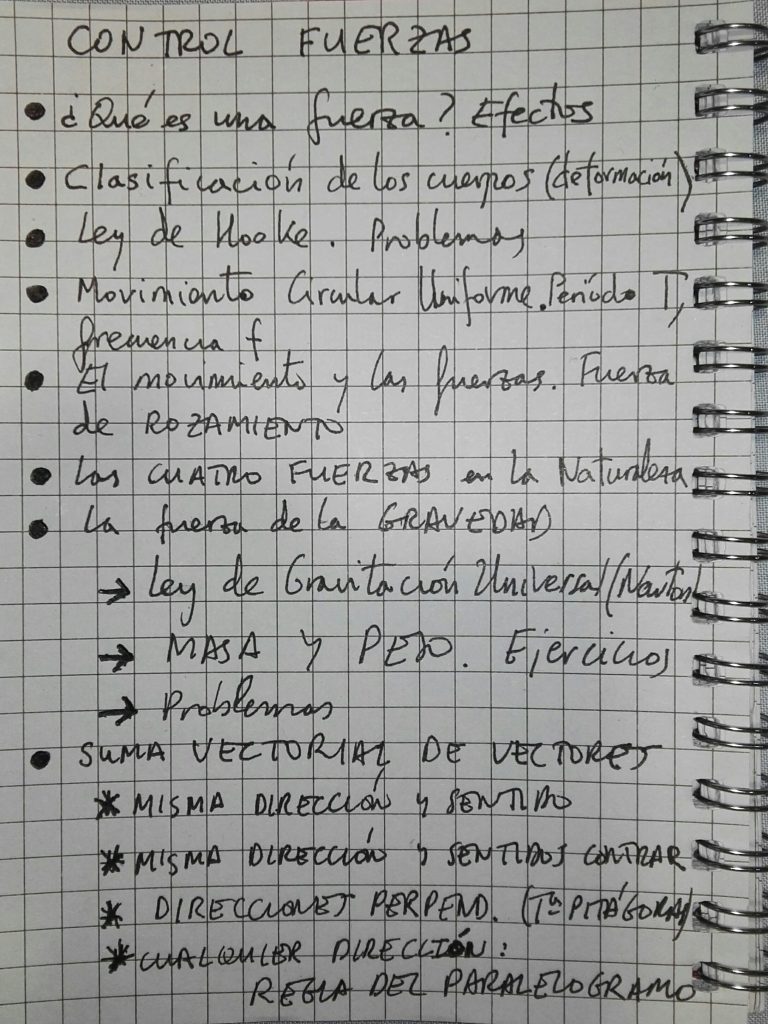 CONTROL FUERZAS
● ¿Qué es una fuerza? Efectos
● Clasificación de los cuerpos (deformación)
● Ley de Hooke. Problemas
● Movimiento Circular Uniforme. Período T,
frecuencia f
● El movimiento y las fuerzas. Fuerza
de ROZAMIENTO
● Las CUATRO FUERZAS en la Naturaleza
● La fuerza de la GRAVEDAD
→ Ley de Gravitación Universal (Newton)
→ MASA Y PESO. Ejercicios
→ Problemas
● SUMA VECTORIAL DE VECTORES
* MISMA DIRECCIÓN y SENTIDO
* MISMA DIRECCIÓN y SENTIDOS CONTRAR
* DIRECCIONES PERPEND. (Tª PITÁGORAS)
* CUALQUIER DIRECCIÓN:
REGLA DEL PARALELOGRAMO